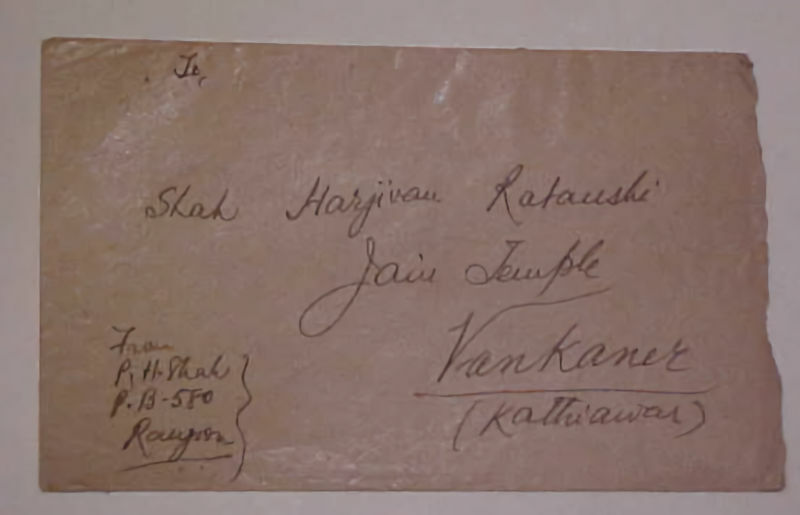 To,
Shah Harjivan Ratanshi
Jain Temple
Vankaner
(Kathiawar)
From
P. H. Shah
P. B - 580
Rangoon